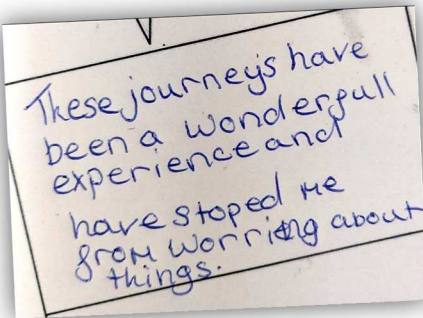 These journeys have
been a wonderfull
experience and
have stoped me
from worring about
things.